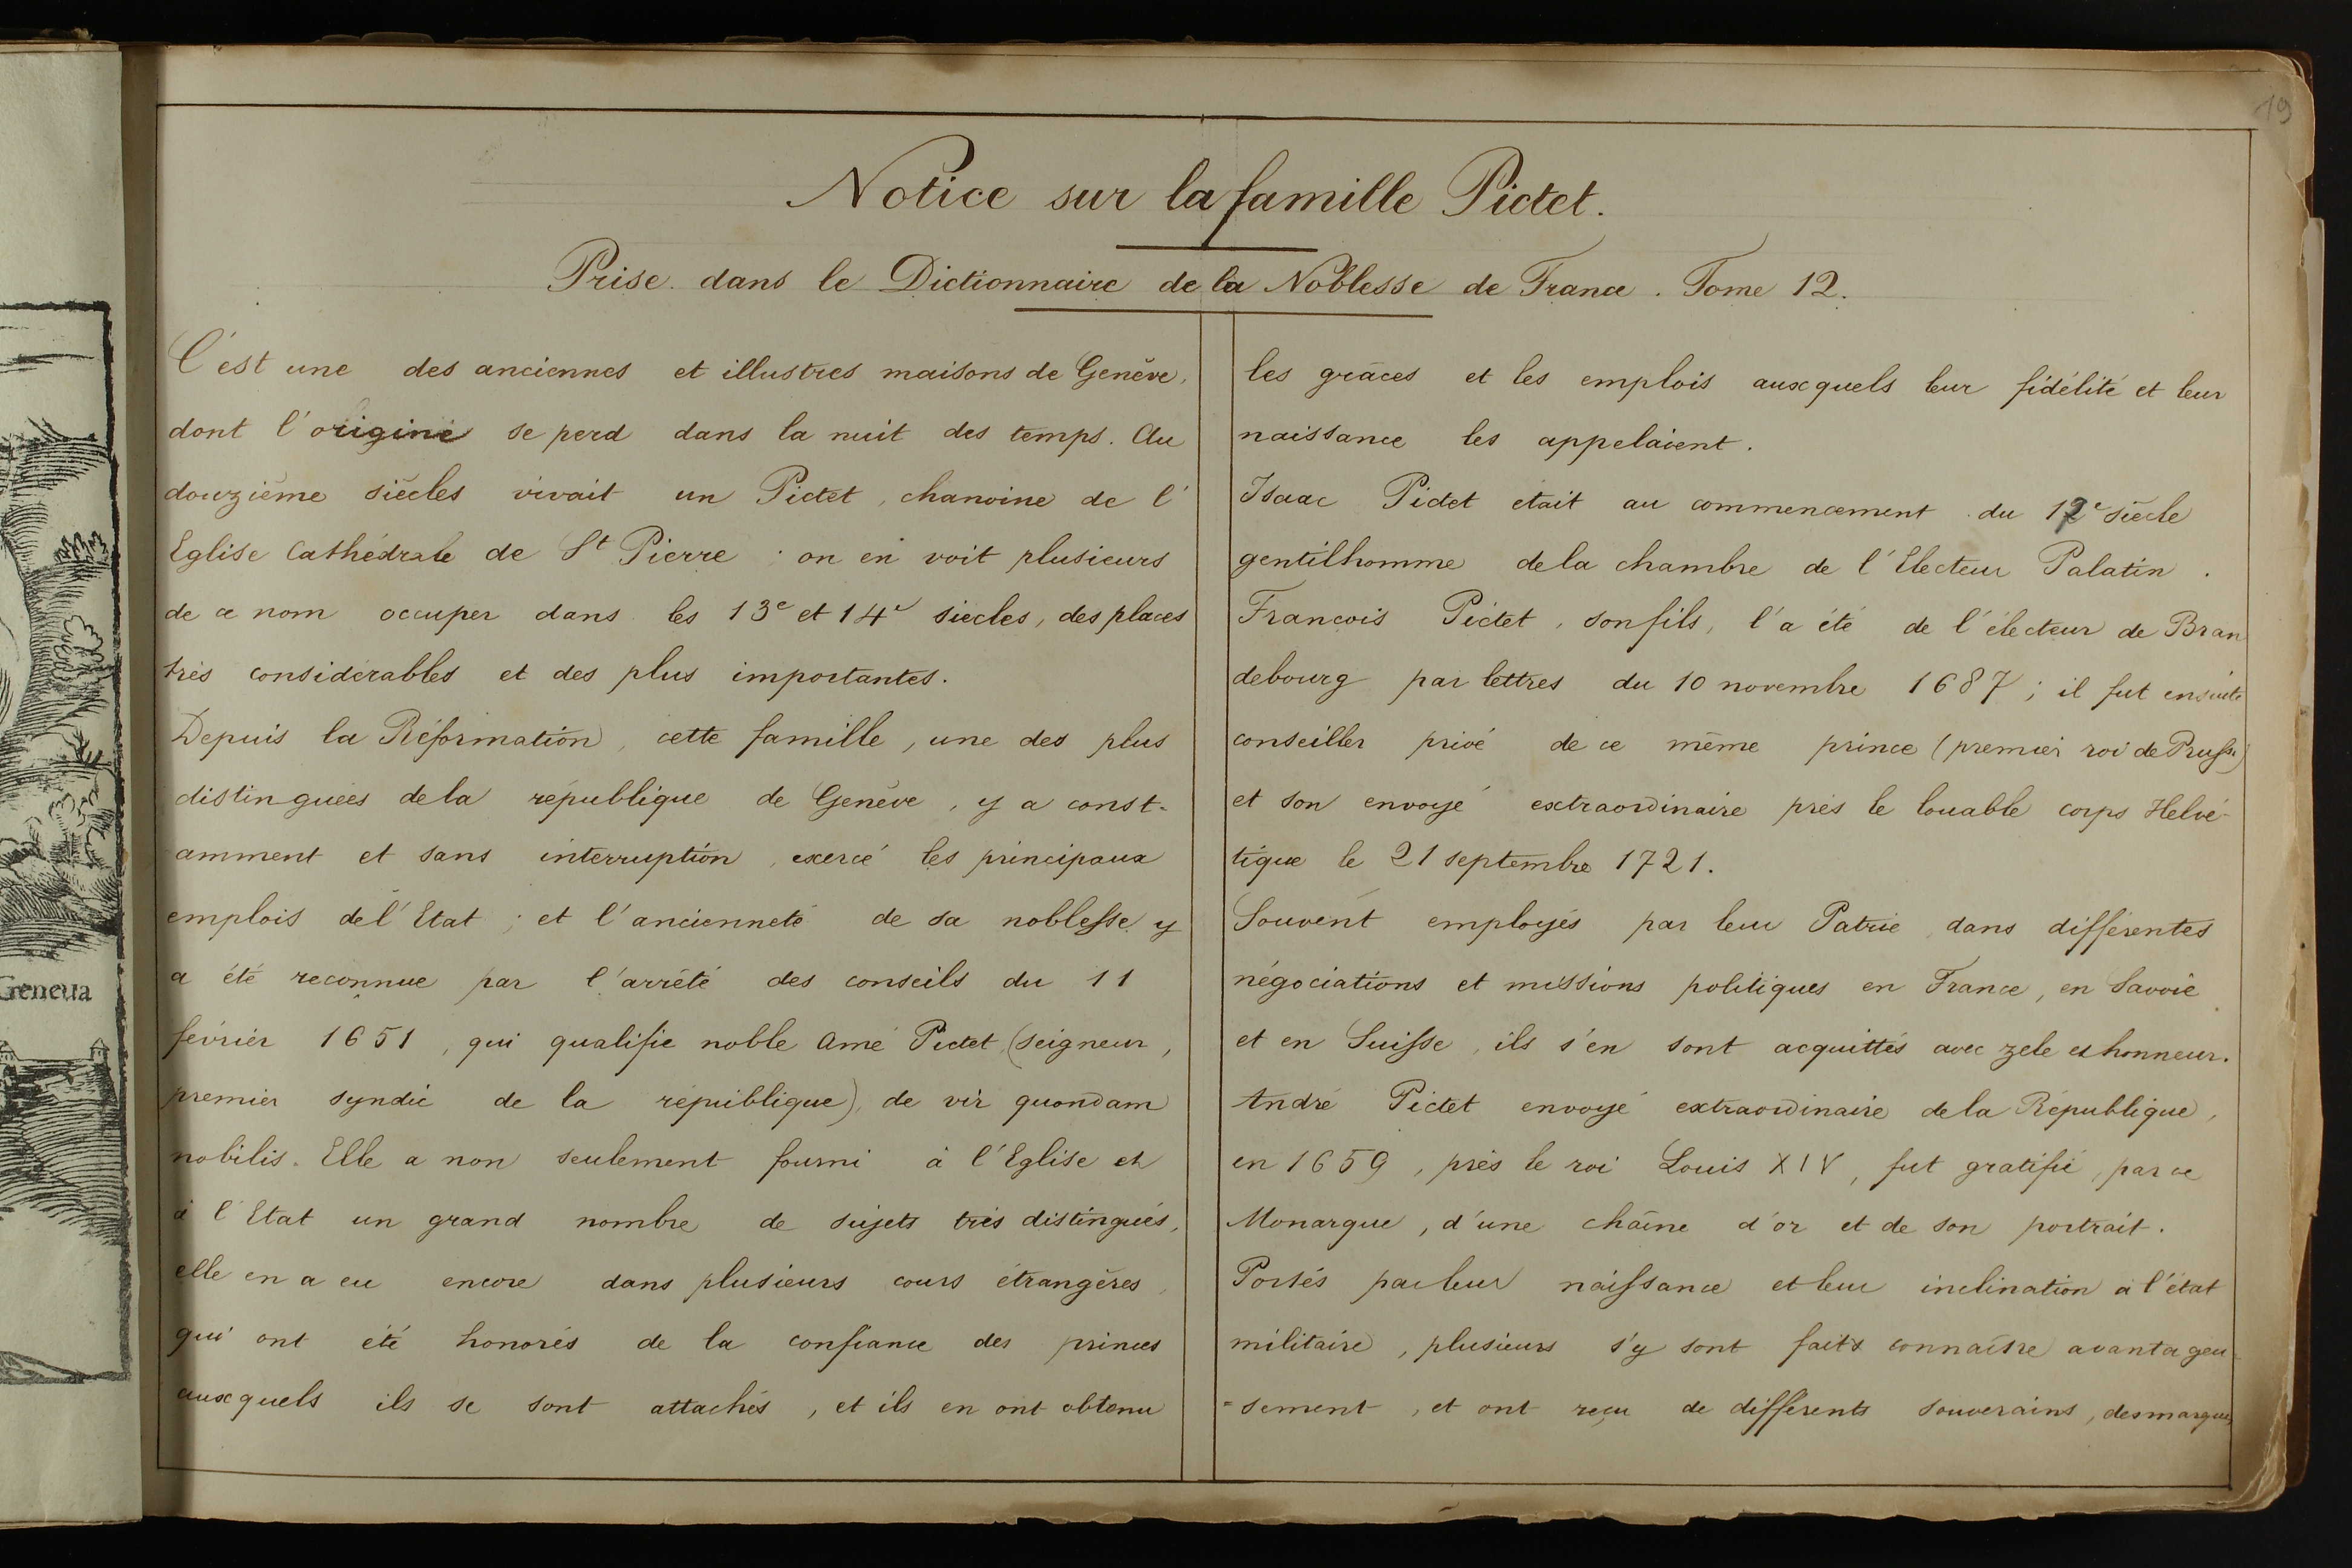 19
Notice sur la famille Pictet.
Prise dans le Dictionnaire de la Noblesse de France. Tome 12.
C'est une des anciennes et illustres maisons de Genève,
dont l'origine se perd dans la nuit des temps. Au
douzième siècles vivait un Pictet, chanoine de l'
Eglise Cathédrale de St Pierre : on en voit plusieurs
de ce nom occuper dans les 13e et 14e siècles, des places
très considérables et des plus importantes.
Depuis la Réformation, cette famille, une des plus
distinguées de la république de Genève, y a const-
amment et sans interruption, exercé les principaux
emplois de l'Etat ; et l'ancienneté de sa noblesse y
a été reconnue par l'arrêté des conseils du 11
février 1651, qui qualifie noble Amé Pictet, (seigneur,
premier syndic de la république), de vir quondam
nobilis. Elle a non seulement fourni à l'Eglise et
à l'Etat un grand nombre de sujets très distingués,
elle en a eu encore dans plusieurs cours étrangères,
qui ont été honorés de la confiance des princes
auxquels ils se sont attachés, et ils en ont obtenu
les grâces et les emplois auxquels leur fidélité et leur
naissance les appelaient.
Isaac Pictet était au commencement du 17e siècle
gentilhomme de la chambre de l'Electeur Palatin.
Francois Pictet, son fils, l'a été de l'électeur de Bran
debourg par lettres du 10 novembre 1687 ; il fut ensuite
conseiller privé de ce même prince (premier roi de Prusse)
et son envoyé extraordinaire près le louable corps Helvé-
tique le 21 septembre 1721.
Souvent employés par leur Patrie dans différentes
négociations et missions politiques en France, en Savoie
et en Suisse, ils s'en sont acquittés avec zele et honneur.
André Pictet envoyé extraordinaire de la République,
en 1659, près le roi Louis XIV, fut gratifié, par ce
Monarque, d'une chaîne d'or et de son portrait.
Portés par leur naissance et leur inclination à l'état
militaire, plusieurs s'y sont faits connaître avantageu-
=sement, et ont reçu de différents souverains, des marques
Geneua